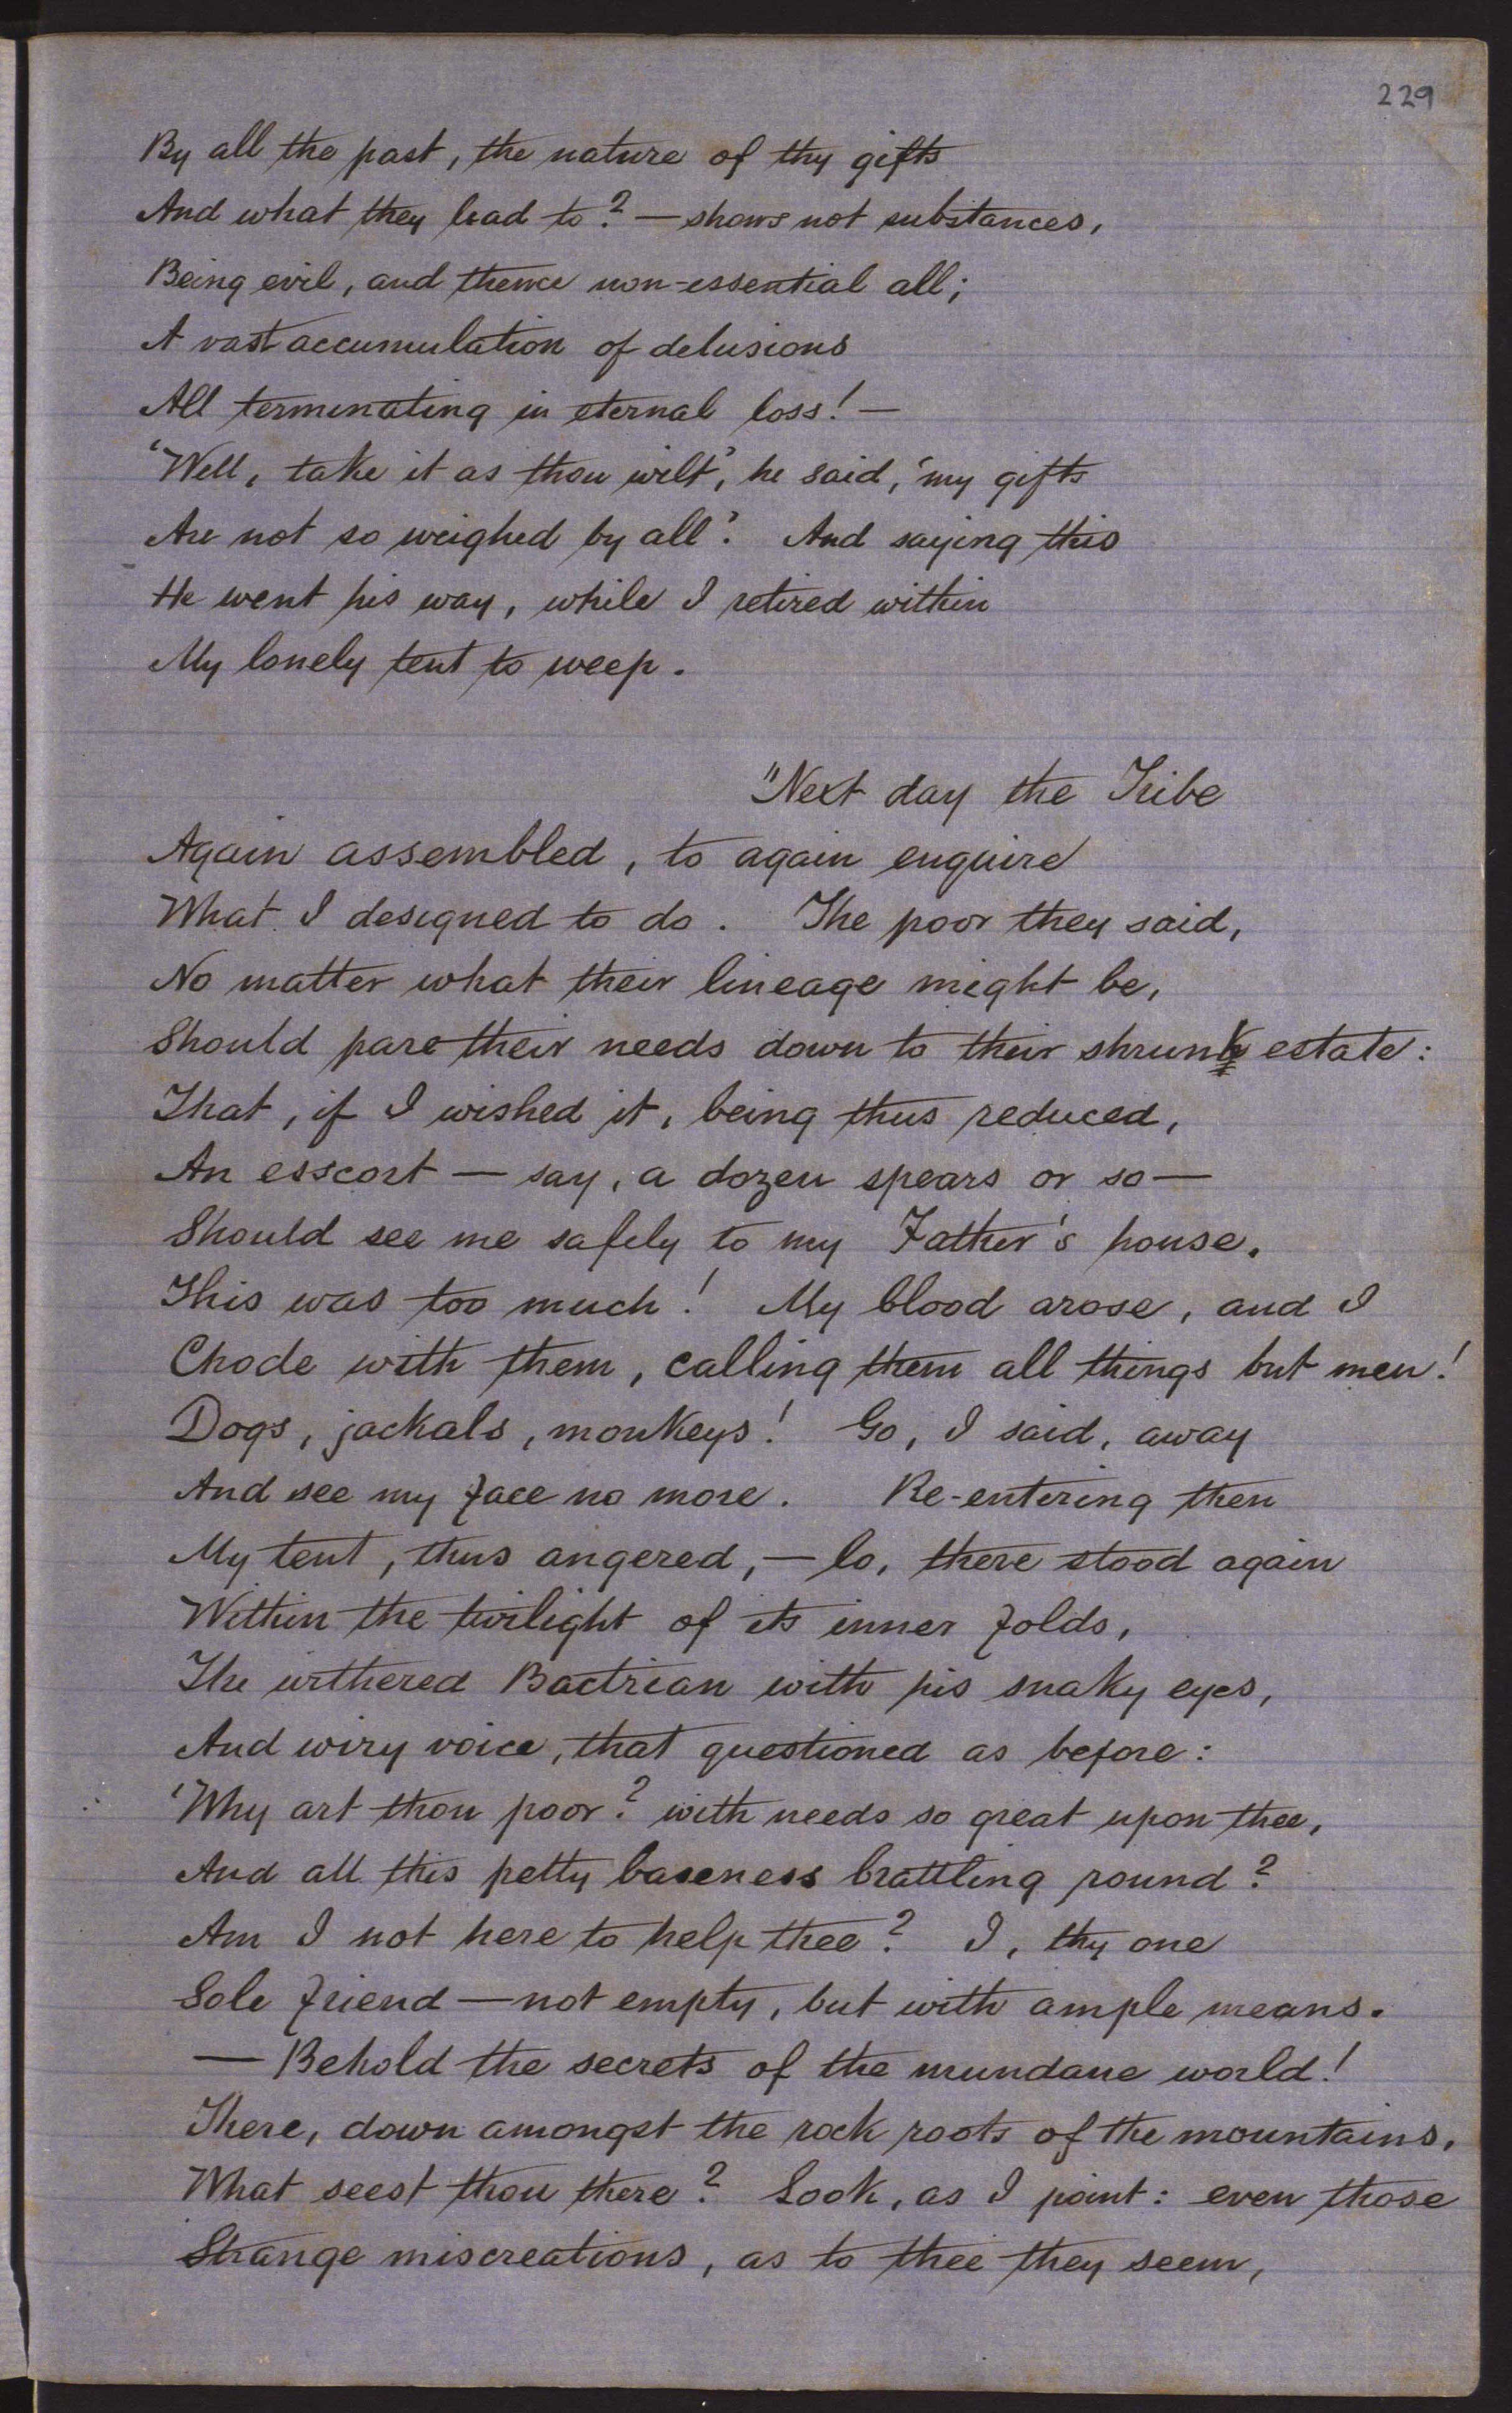 229
By all the past, the nature of thy gifts
And what they lead to? — shows not substances,
Being evil, and thence non-essential all;
A vast accumulation of delusions
All terminating in eternal loss! —
'Well, take it as thou wilt', he said, 'my gifts
Are not so weighed by all'. And saying this
He went his way, while I retired within
My lonely tent to weep.
"Next day the Tribe
Again assembled, to again enquire
What I designed to do. The poor they said,
No matter what their lineage might be,
Should pare their needs down to their shrunk estate:
That, if I wished it, being thus reduced,
An esscort — say, a dozen spears or so —
Should see me safely to my Father's house.
This was too much! My blood arose, and I
Chode with them, calling them all things but men!
Dogs, jackals, monkeys! Go, I said, away
And see my face no more. Re-entering then
My tent, thus angered, — lo, there stood again
Within the twilight of its inner folds,
The withered Bactrian with his snaky eyes,
And wiry voice, that questioned as before:
'Why art thou poor? with needs so great upon thee,
And all this petty baseness brattling round?
Am I not here to help thee? I, thy one
Sole friend — not empty, but with ample means.
— Behold the secrets of the mundane world!
There, down amongst the rock roots of the mountains,
What seest thou there? Look, as I point: even those
Strange miscreations, as to thee they seem,